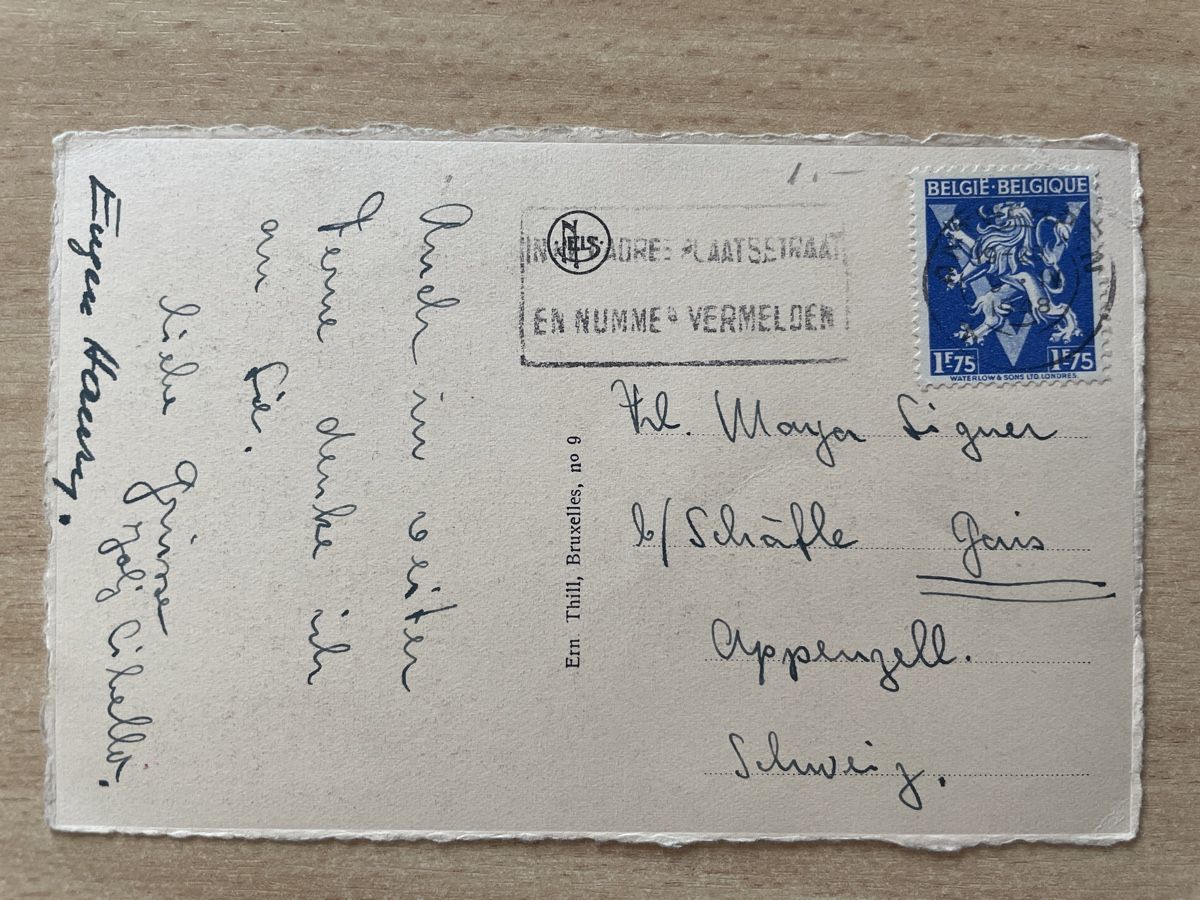 Auch in weiter
Ferne denke ich
an Sie.
liebe Grüsse
Eugen
NELS
IN ADRES PLAATS STRAAT
EN NUMMER VERMELDEN
1.—
BELGIË-BELGIQUE
1F75 1F75
WATERLOW & SONS LTD. LONDRES.
Ern Thill, Bruxelles, no 9
Frl. Maya Signer
b/ Schäfle Gais
Appenzell.
Schweiz.